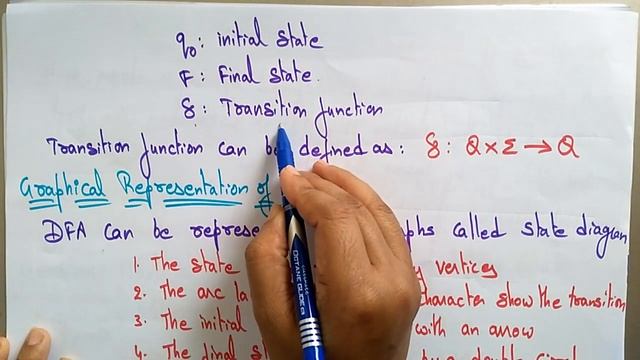 q₀: initial state
F: Final state.
δ: Transition function
Transition function can be defined as: δ: Q×Σ→Q
Graphical Representation of
DFA can be represe phs called state diagram
1. The state y vertices
2. The arc la character show the transition
3. The initial with an arrow
4. The final st by a double circl
OCTANE GLIDER